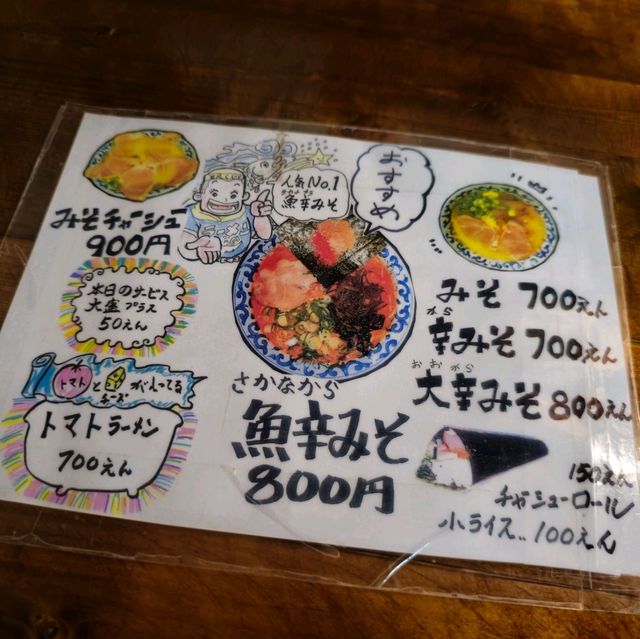 みそチャーシュー
900円
本日のサービス
大盛プラス
50えん
トマトと
チーズ
が入ってる
トマトラーメン
700えん
ラーメン
人気No.1
さかなから
魚辛みそ
おすすめ
さかなから
魚辛みそ
800円
みそ 700えん
から
辛みそ 700えん
おおから
大辛みそ 800えん
150えん
チャーシューロール
小ライス‥100えん